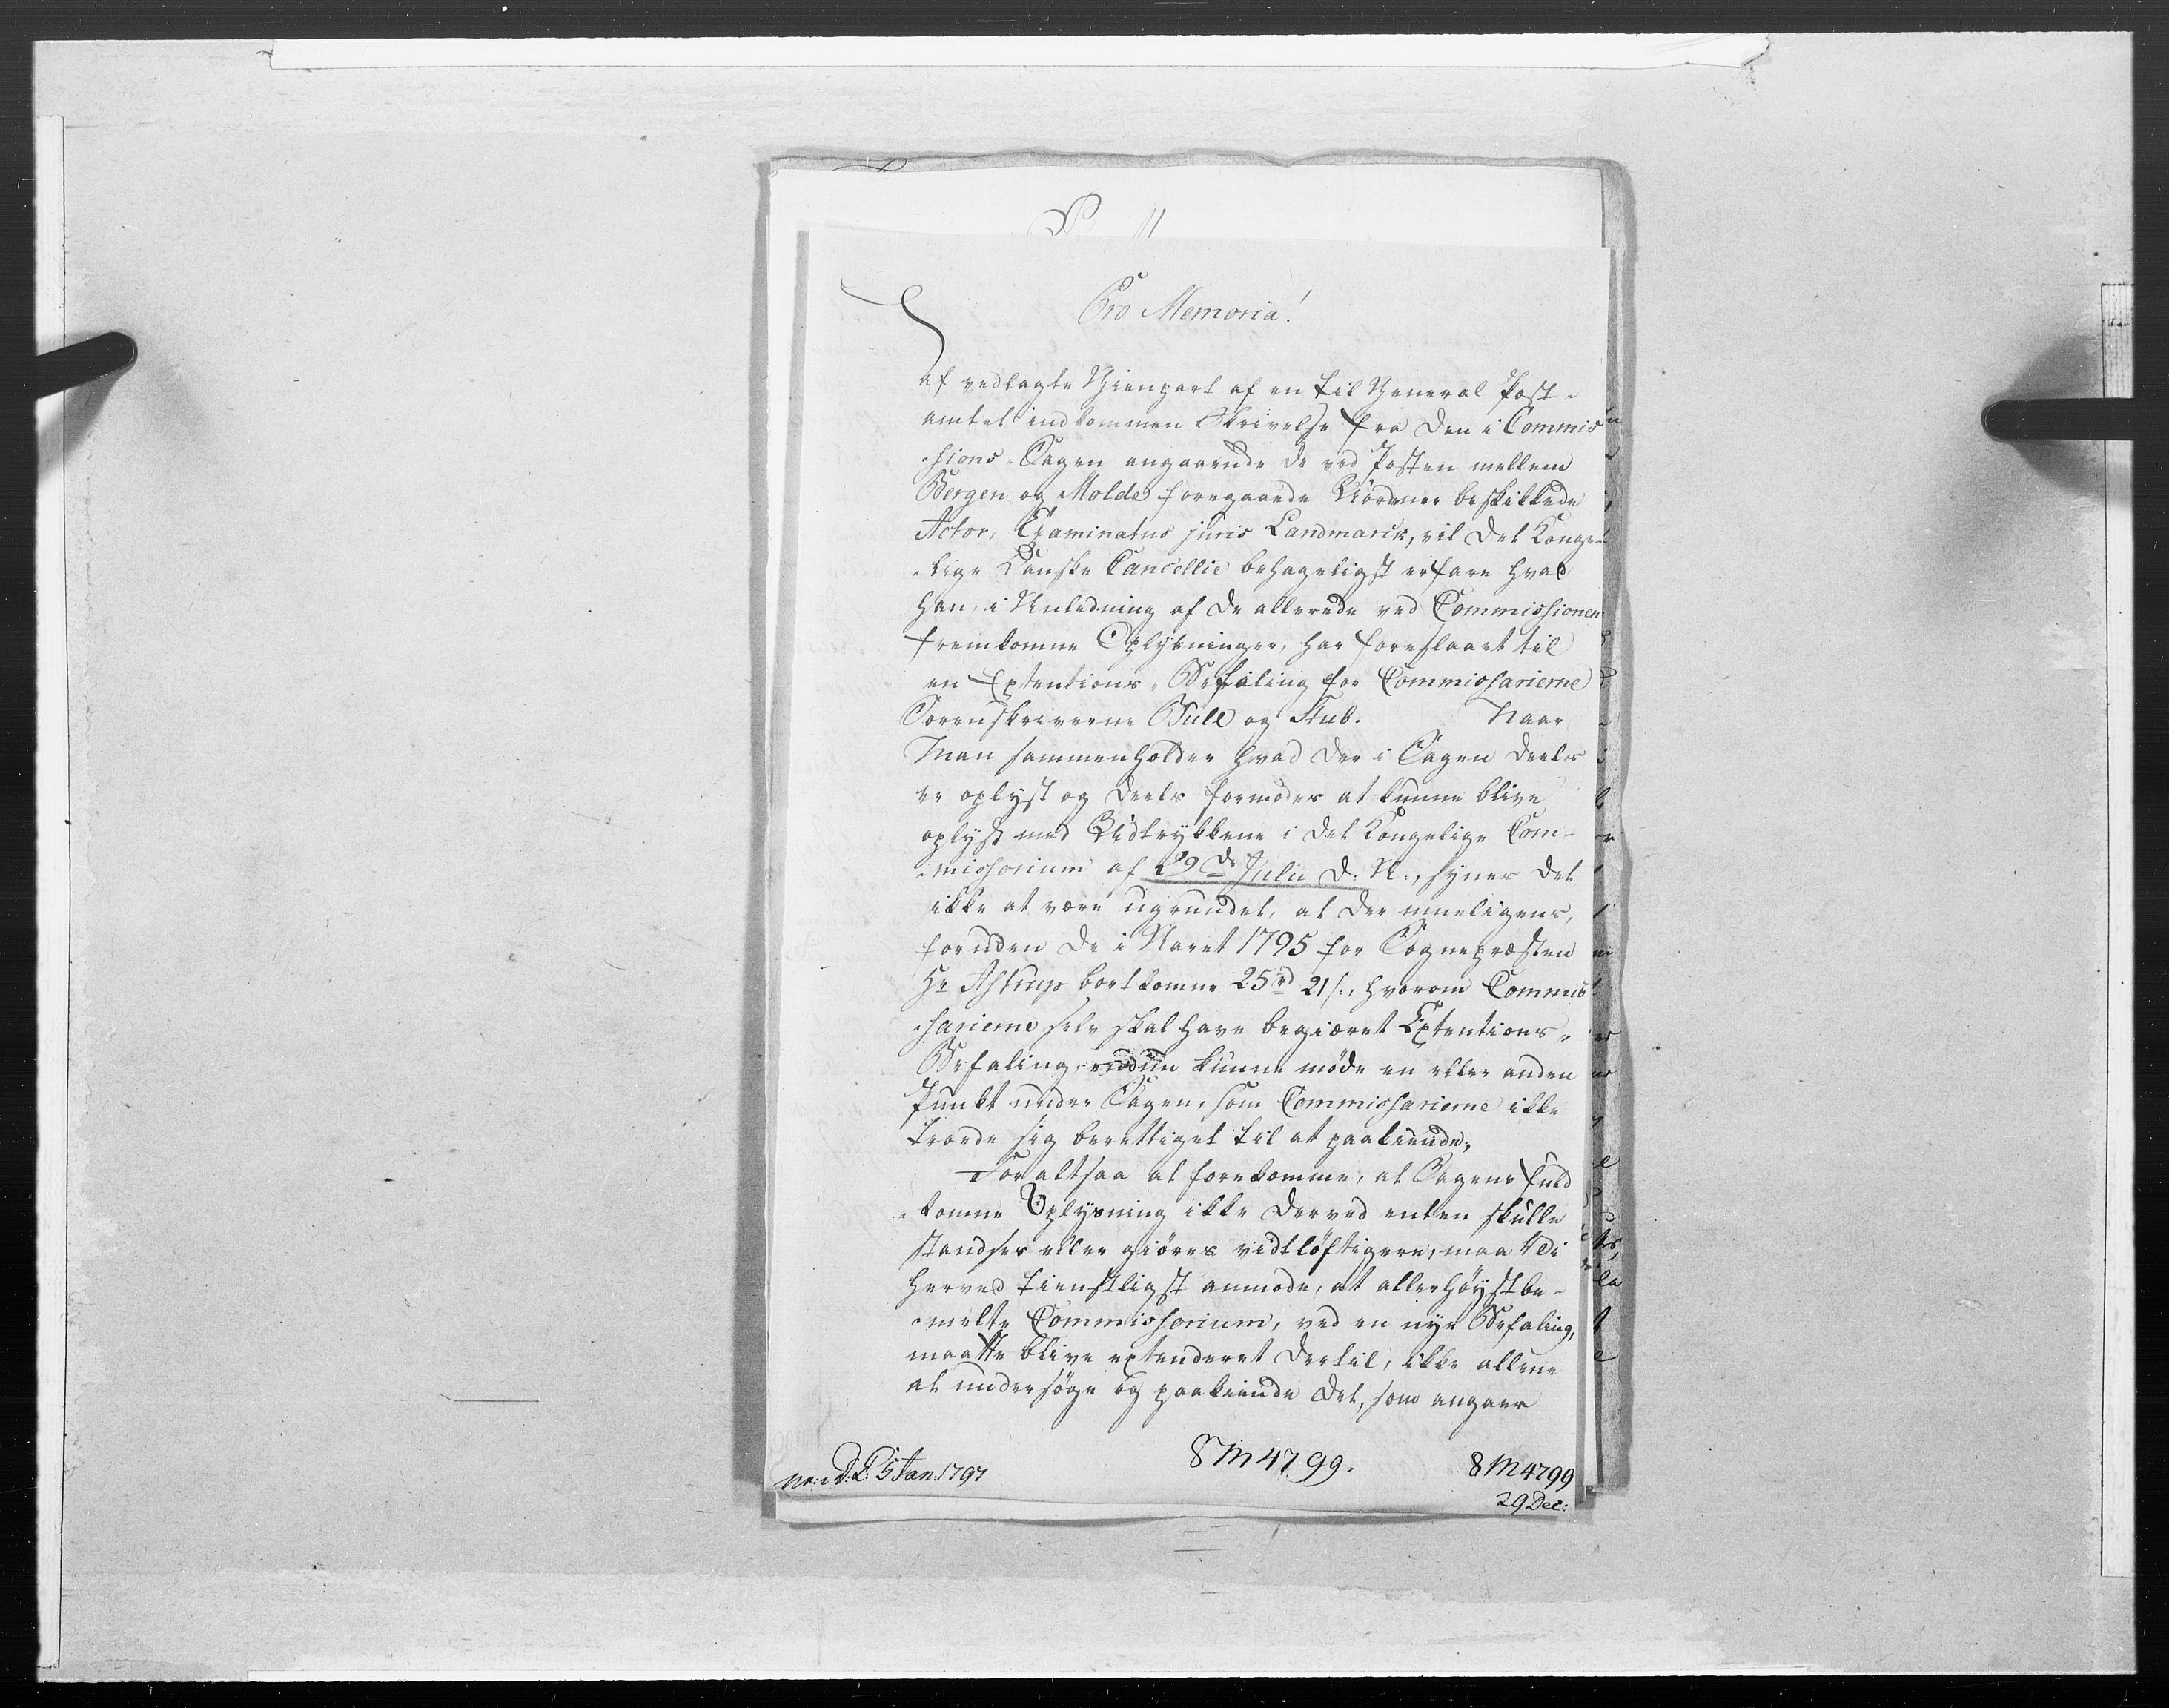 Pro Memoria!
af vedlagte Gienpart af en til General Post-
amtet indkommen Skrivelse fra den i Commis
sions-Sagen angaaende de ved Posten mellem
Bergen og Molde foregaaede beskikkede
Actor, Examinatus juris Landmarck, vil det Konge-
lige Danske Cancellie behageligst erfare hvad
han, i Anledning af de allerede ved Commissionen
fremkomne Oplysninger, har foreslaaet til
en Extentions-Befaling for Commissarierne
Sorenskriverne Bull og Stub. Naar
man sammenholder hvad der i Sagen deels
er oplyst og deels formodes at kunne blive
oplyst med Udtrykkene i det Kongelige Com-
missorium af 29de Julii d: A:, synes det
ikke at være ugrundet, at der mueligens,
foruden de i Aaret 1795 for Sognepræsten
Hr Astrup bortkomne 25rd 21s., hvorom Commis
sarierne selv skal have begiæret Extentions-
Befaling, endnu kunne møde en eller anden
Punkt under Sagen, som Commissarierne ikke
troede sig berettiget til at paakiende.
For altsaa at forekomme, at Sagens fuld
komne Oplysning ikke derved enten skulle
standses eller giøres vidtløftigere, maa Vi
herved tienstligst anmode, at allerhøystbe-
melte Commissorium, ved en nye Befaling,
maatte blive extenderet dertil, ikke allene
at undersøge og paakiende det, som angaaer
8 M 4799.
8 M 4799
29 Dec:
D: C: 5 Jan: 1797